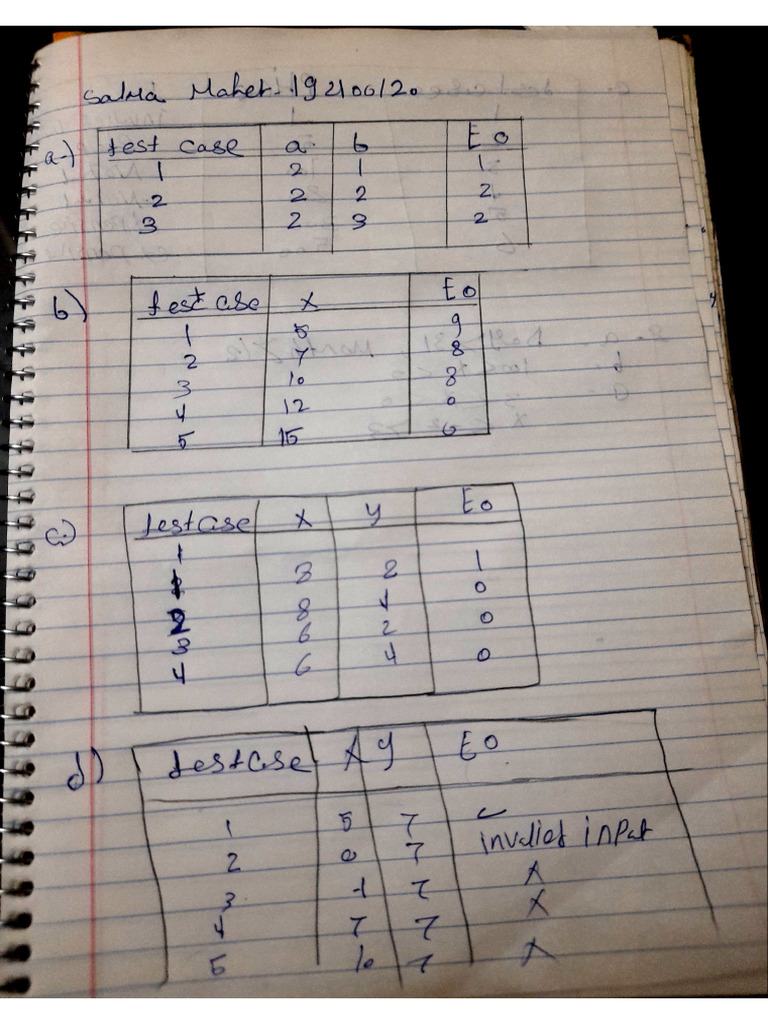 Salma Maher. 192100120
a-) test case a b EO
1 2 1 1
2 2 2 2
3 2 3 2
b) test case X EO
1 5 9
2 7 8
3 10 8
4 12 0
5 15 6
c) test case X Y EO
1 8 2 1
2 8 4 0
3 6 2 0
4 6 4 0
d) test case X Y EO
1 5 7 ✓
2 0 7 invalid input
3 -1 7 X
4 7 7 X
5 10 7 X